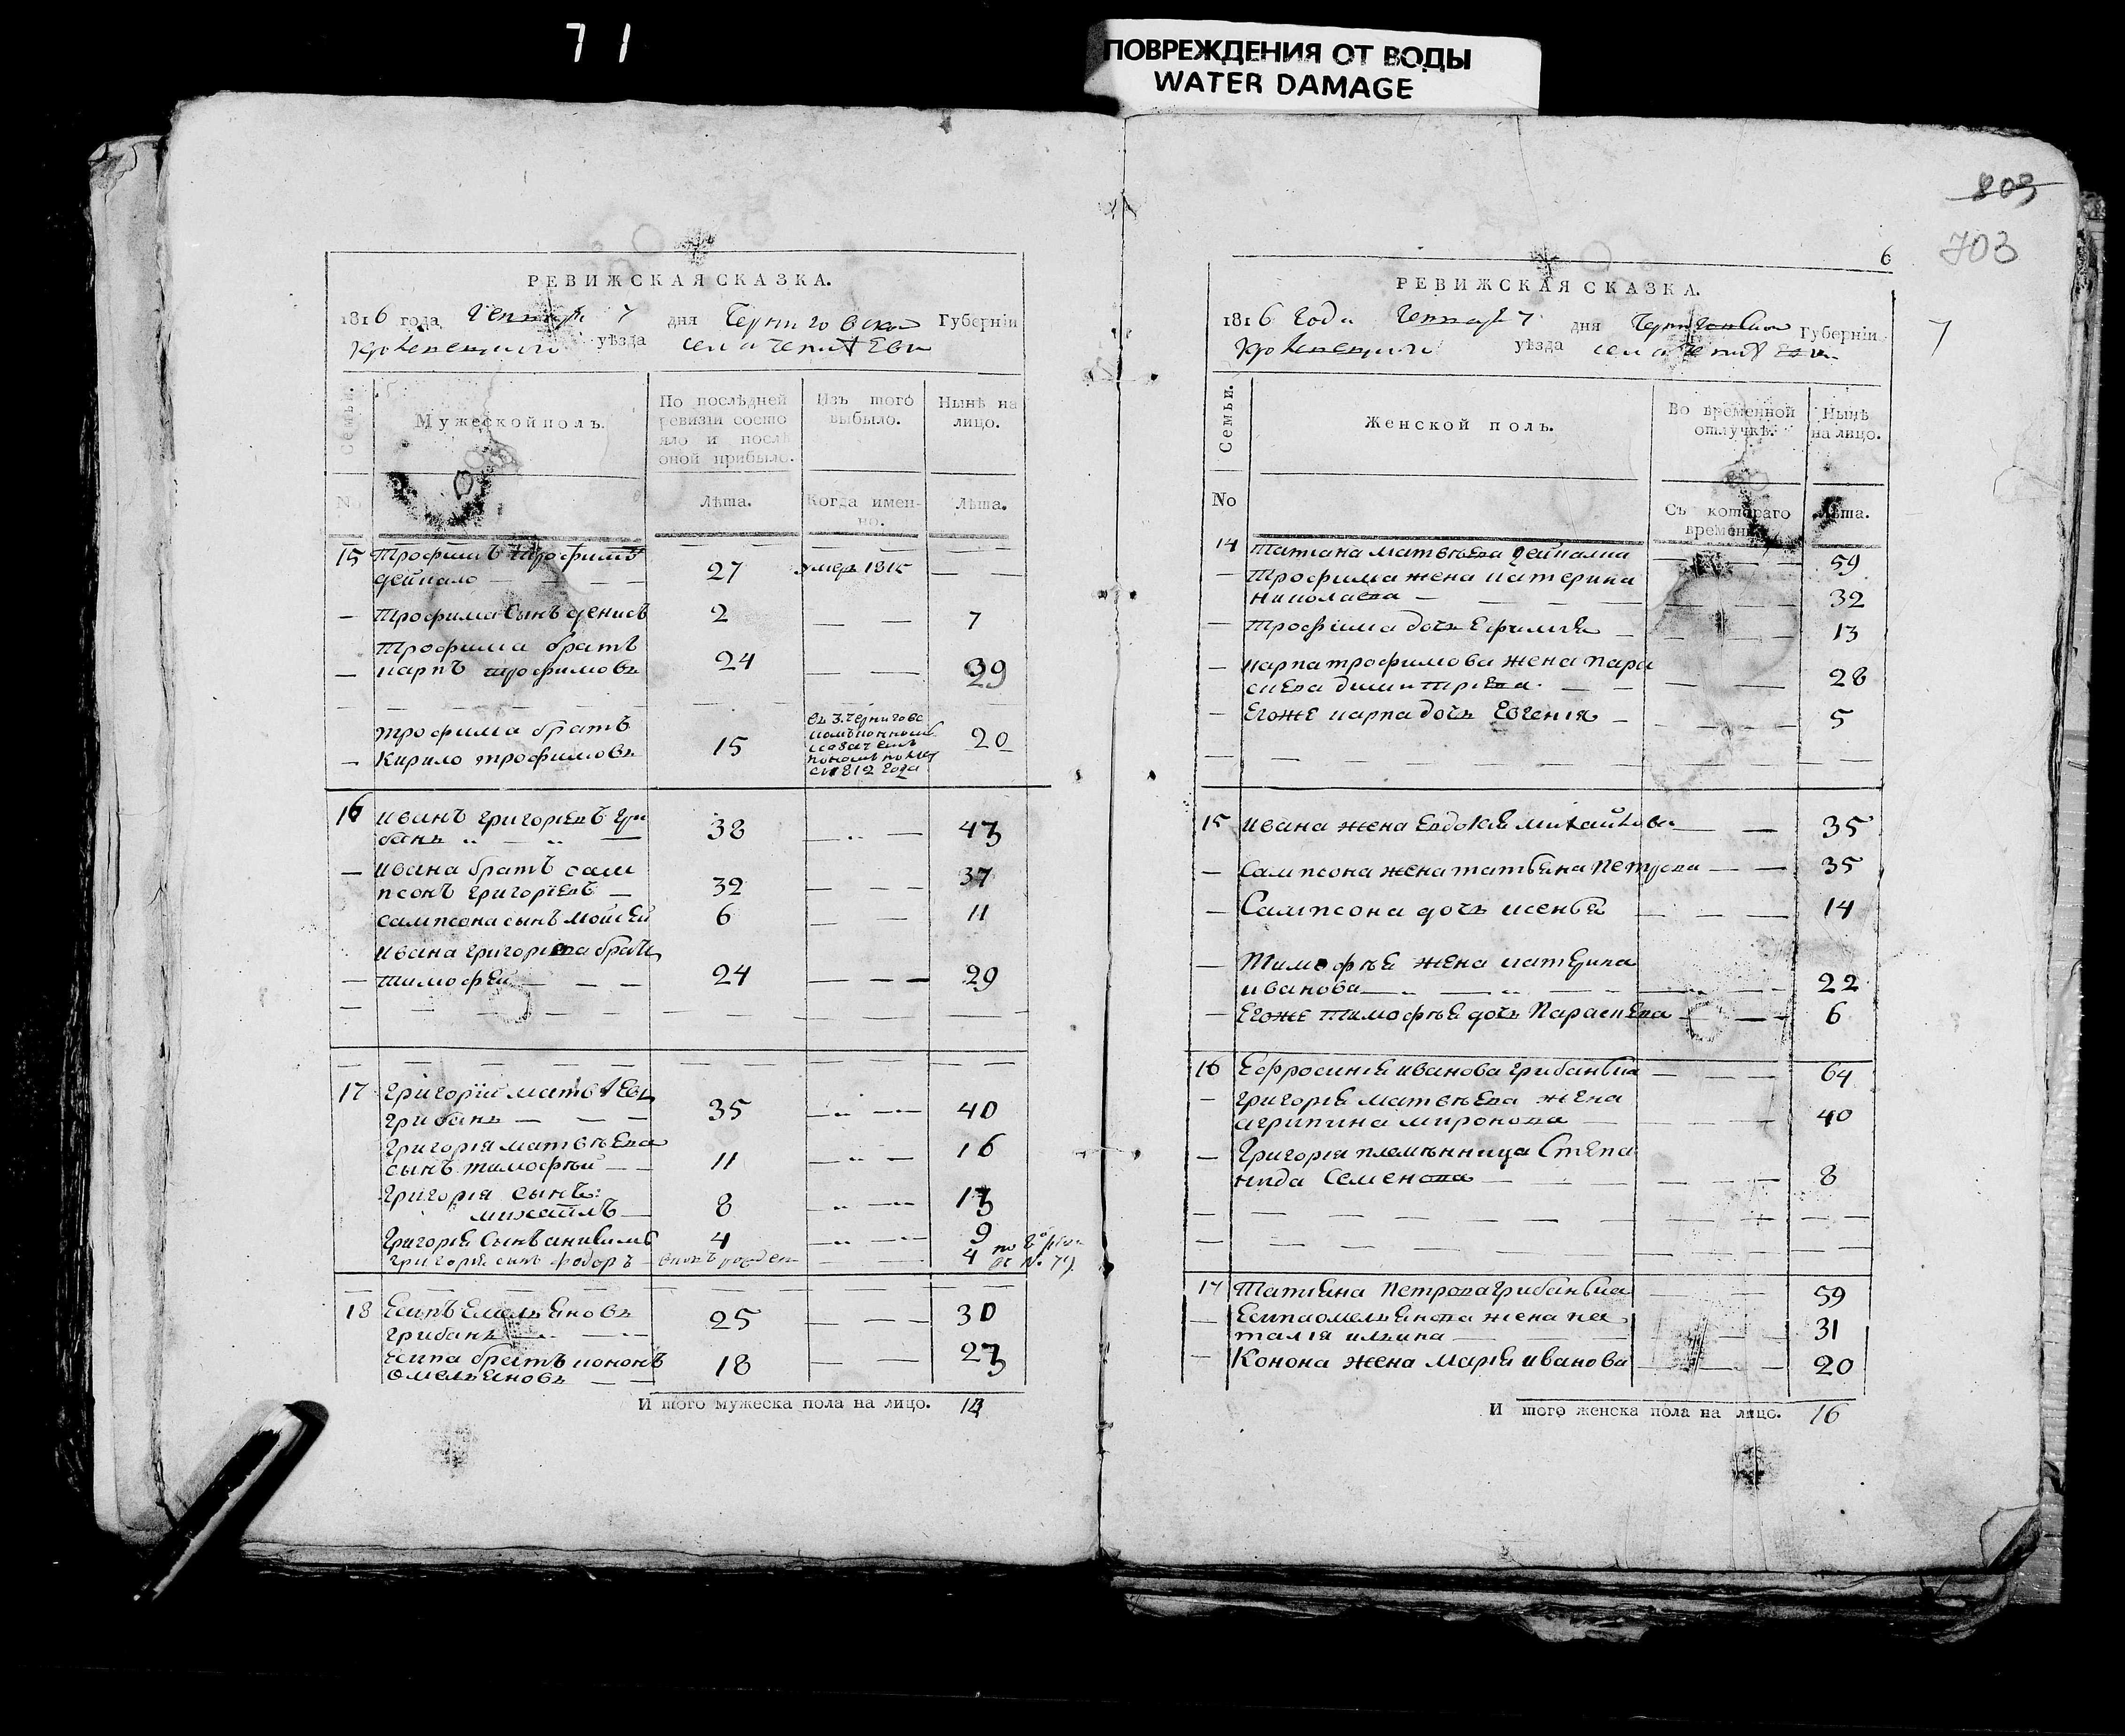 71
ПОВРЕЖДЕНИЯ ОТ ВОДЫ
WATER DAMAGE
РЕВИЖСКАЯ СКАЗКА.
1816 года Генваря 7 дня Черниговской Губерніи
Кролевецкого уѣзда села
Семьи.
Мужеской полъ.
По послѣдней ревизіи состояло и послѣ оной прибыло.
Изъ того выбыло.
Нынѣ на лицо.
№
Лѣта.
Когда имен-
но.
Лѣта.
15 Трофимъ Трофимъ
27 умер 1815
— Трофима сынъ денисъ 2 — — 7
Трофима братъ
— карпъ трофимовъ 24 — — 29
трофима братъ
— Кирило трофимовъ 15 20
с 1812 года
16 иванъ григориевъ гри
банъ 38 — — 43
— ивана братъ сам
псонъ григориевъ — 32 — — — 37
сампсона сынъ мойсей 6 — — 11
ивана григориева братъ
— тимофей — — — 24 — — — 29
17 григорий матвѣевъ
грибанъ — — 35 — — 40
григория матвѣева
сынъ тимофѣй — — 11 — — 16
григория сынъ
михайлъ — 8 — — 13
григорія сынъ 4 — — 9
григорія сынъ федоръ — 4
18 Есипъ Емельяновъ
грибанъ 25 — — — 30
есипа братъ кононъ
омельяновъ — — 18 — — 23
И того мужеска пола на лицо. 14
803
703
6
7
РЕВИЖСКАЯ СКАЗКА.
1816 Года Генваря 7 дня Черниговской Губерніи
Кролевецкого уѣзда села
Семьи.
Женской полъ.
Во временной
отлучкѣ.
Нынѣ
на лицо.
No
Съ котораго
времени.
Лѣта.
14 татиана матвѣева 59
— Трофима жена катерина
николаева — — — 32
— трофима дочь Ефимия — 13
— карпа трофимова жена пара
скева димитриева — — 28
— Егоже карпа дочь Евгения — 5
15 ивана жена Евдокия михайлова — — 35
— Сампсона жена татьяна петрова — — 35
— Сампсона дочь 14
— Тимофѣя жена катерина
иванова — — 22
— Егоже тимофѣя дочь Параскева 6
16 Ефросиния иванова грибанька 64
— григория матвѣева жена
агрипина миронова — 40
— Григория племѣнница Степа
нида Семенова — 8
17 Татияна петрова грибанька 59
— Есипа омельянова жена на
талія ильина 31
— Конона жена мария иванова 20
И того женска пола на лицо. 16